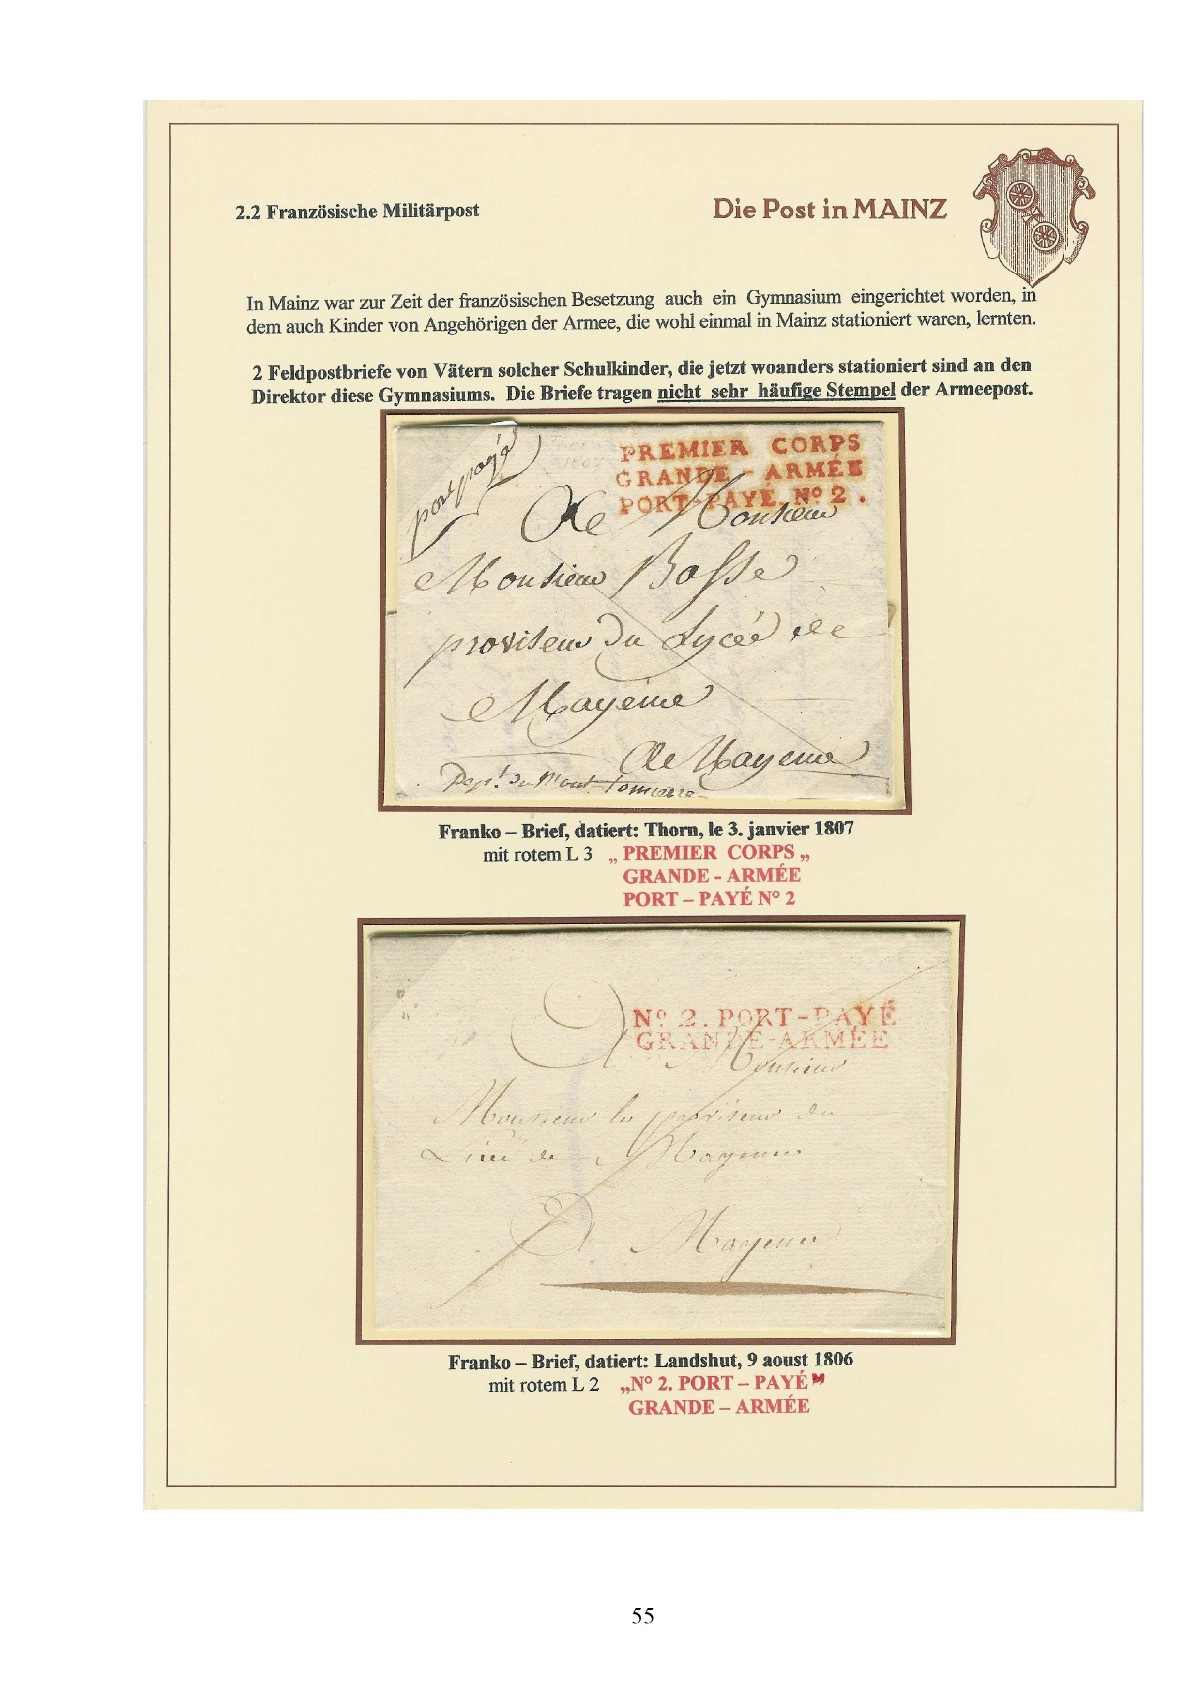 2.2 Französische Militärpost
Die Post in MAINZ
In Mainz war zur Zeit der französischen Besetzung auch ein Gymnasium eingerichtet worden, in
dem auch Kinder von Angehörigen der Armee, die wohl einmal in Mainz stationiert waren, lernten.
2 Feldpostbriefe von Vätern solcher Schulkinder, die jetzt woanders stationiert sind an den
Direktor diese Gymnasiums. Die Briefe tragen nicht sehr häufige Stempel der Armeepost.
port payé
PREMIER CORPS
GRANDE - ARMÉE
PORT-PAYÉ. Nº 2.
Monsieur
Monsieur
proviseur du Lycée de
Mayence
Mayence
Franko – Brief, datiert: Thorn, le 3. janvier 1807
mit rotem L 3 „ PREMIER CORPS „
GRANDE - ARMÉE
PORT – PAYÉ N° 2
Nº 2. PORT-PAYÉ
GRANDE-ARMÉE
A Monsieur
Monsieur le proviseur du
de Mayence
A Mayence
Franko – Brief, datiert: Landshut, 9 aoust 1806
mit rotem L 2 „N° 2. PORT – PAYÉ"
GRANDE – ARMÉE
55